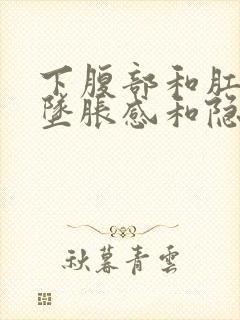 下腹部和肛
坠胀感和隐
秋暮青云